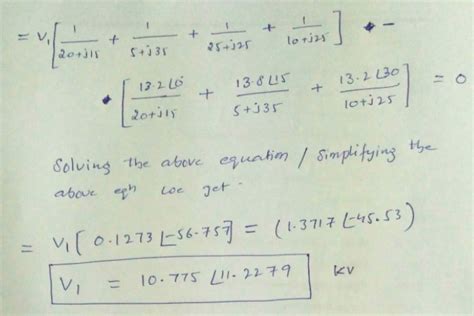 = V₁[ 1/(20+j15) + 1/(5+j35) + 1/(25+j25) + 1/(10+j25) ] -
[ 13.2∠0/(20+j15) + 13.8∠15/(5+j35) + 13.2∠30/(10+j25) ] = 0
Solving the above equation / Simplifying the
above eqn we get.
= V₁[ 0.1273 ∠-56.757 ] = (1.3717 ∠-45.53)
V₁ = 10.775 ∠11.2279 KV